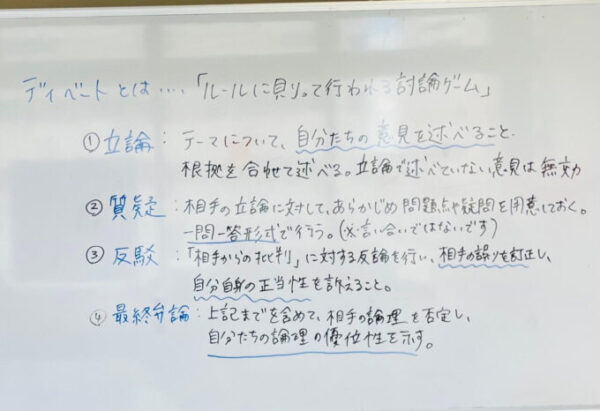 ディベートとは‥‥「ルールに則って行われる討論ゲーム」
①立論：テーマについて、自分たちの意見を述べること。
根拠を合わせて述べる。立論で述べていない意見は無効
②質疑：相手の立論に対して、あらかじめ問題点や疑問を用意しておく。
一問一答形式で行う。(※言い合いではないです)
③反駁：「相手からの批判」に対する反論を行い、相手の誤りを訂正し、
自分自身の正当性を訴えること。
④最終弁論：上記までを含めて、相手の論理を否定し、
自分たちの論理の優位性を示す。